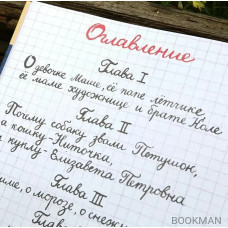 Оглавление
Глава I
О девочке Маше, её папе лётчике,
её маме художнице и брате Коле
Глава II
Почему собаку звали Петушком,
кошку - Ниточка,
куклу - Елизавета Петровна
Глава III
о морозе, о снежи
BOOKMAN